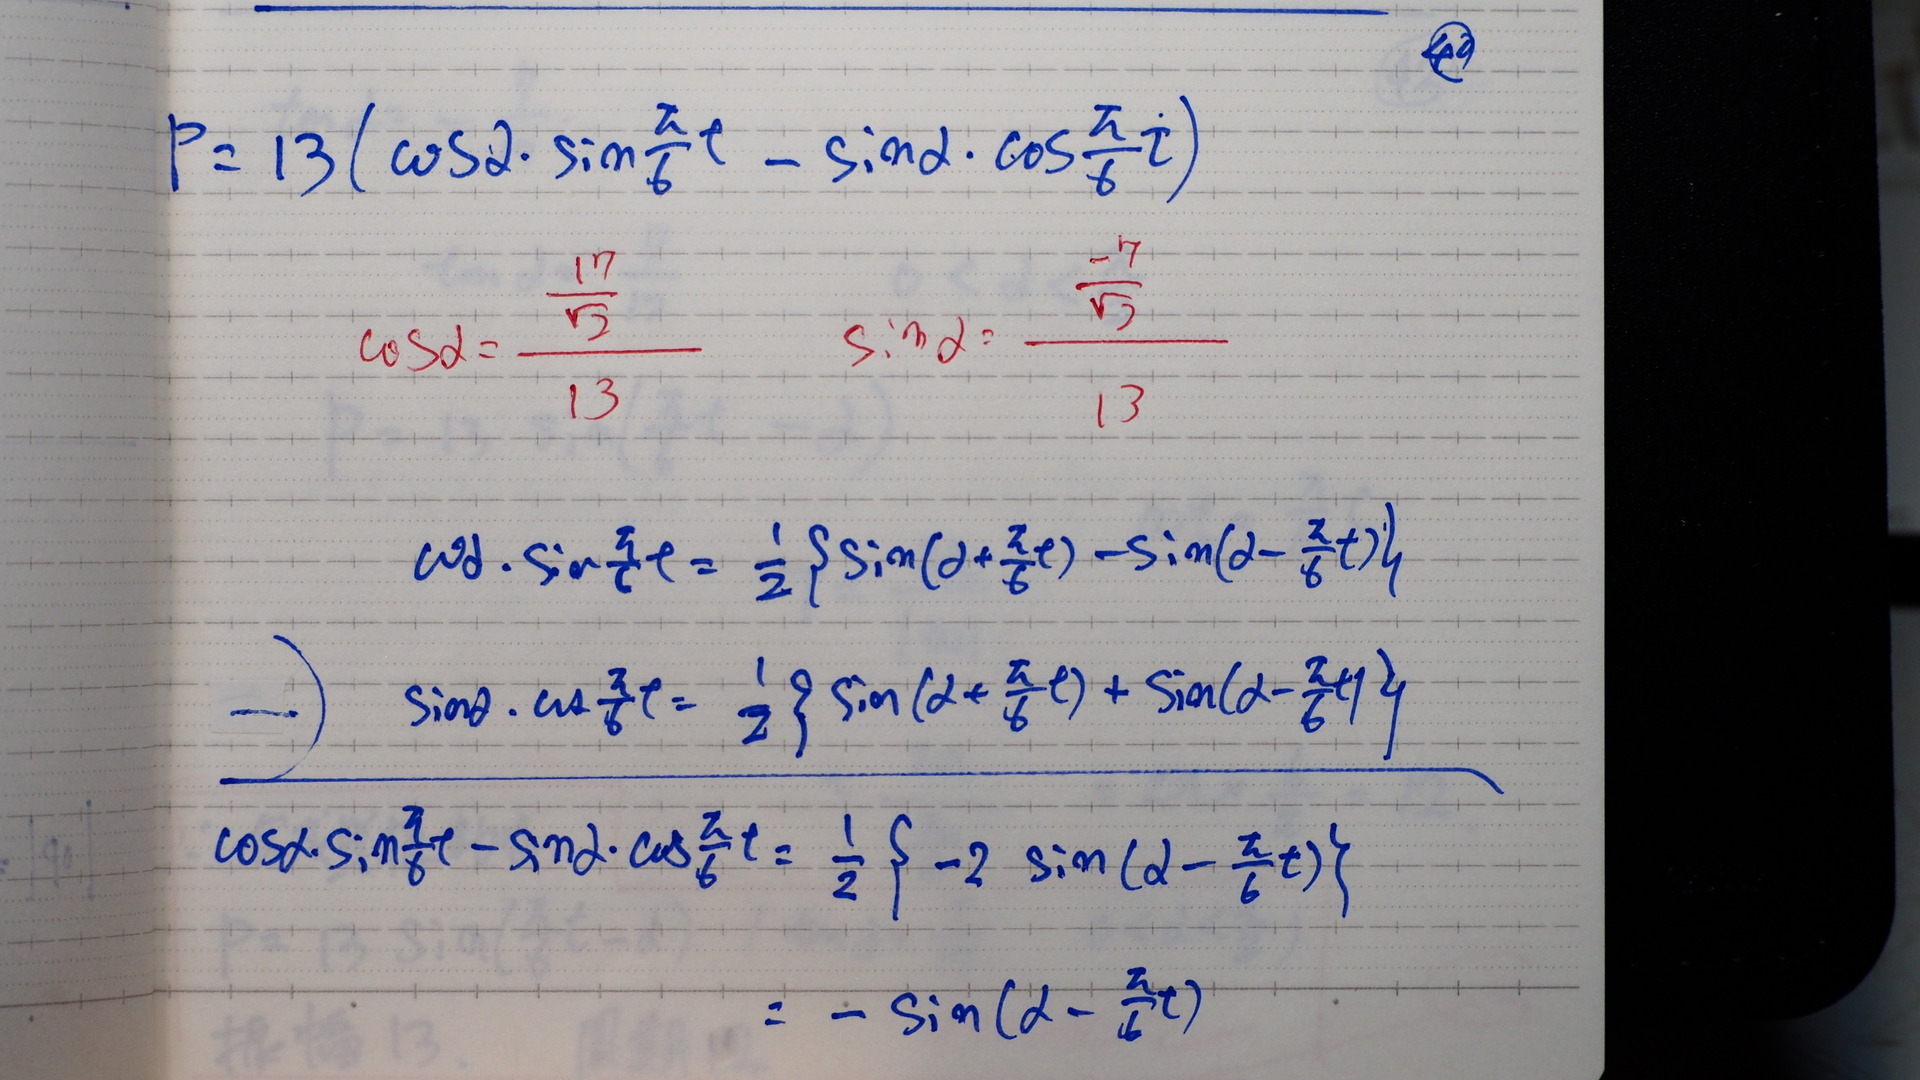 P = 13 ( cosα · sin π/6 t − sinα · cos π/6 t )
cosα = (17/√3)/13 sinα = (−7/√3)/13
cosα · sin π/6 t = 1/2 { sin(α + π/6 t) − sin(α − π/6 t) }
−) sinα · cos π/6 t = 1/2 { sin(α + π/6 t) + sin(α − π/6 t) }
cosα · sin π/6 t − sinα · cos π/6 t = 1/2 { −2 sin(α − π/6 t) }
= − sin(α − π/6 t)